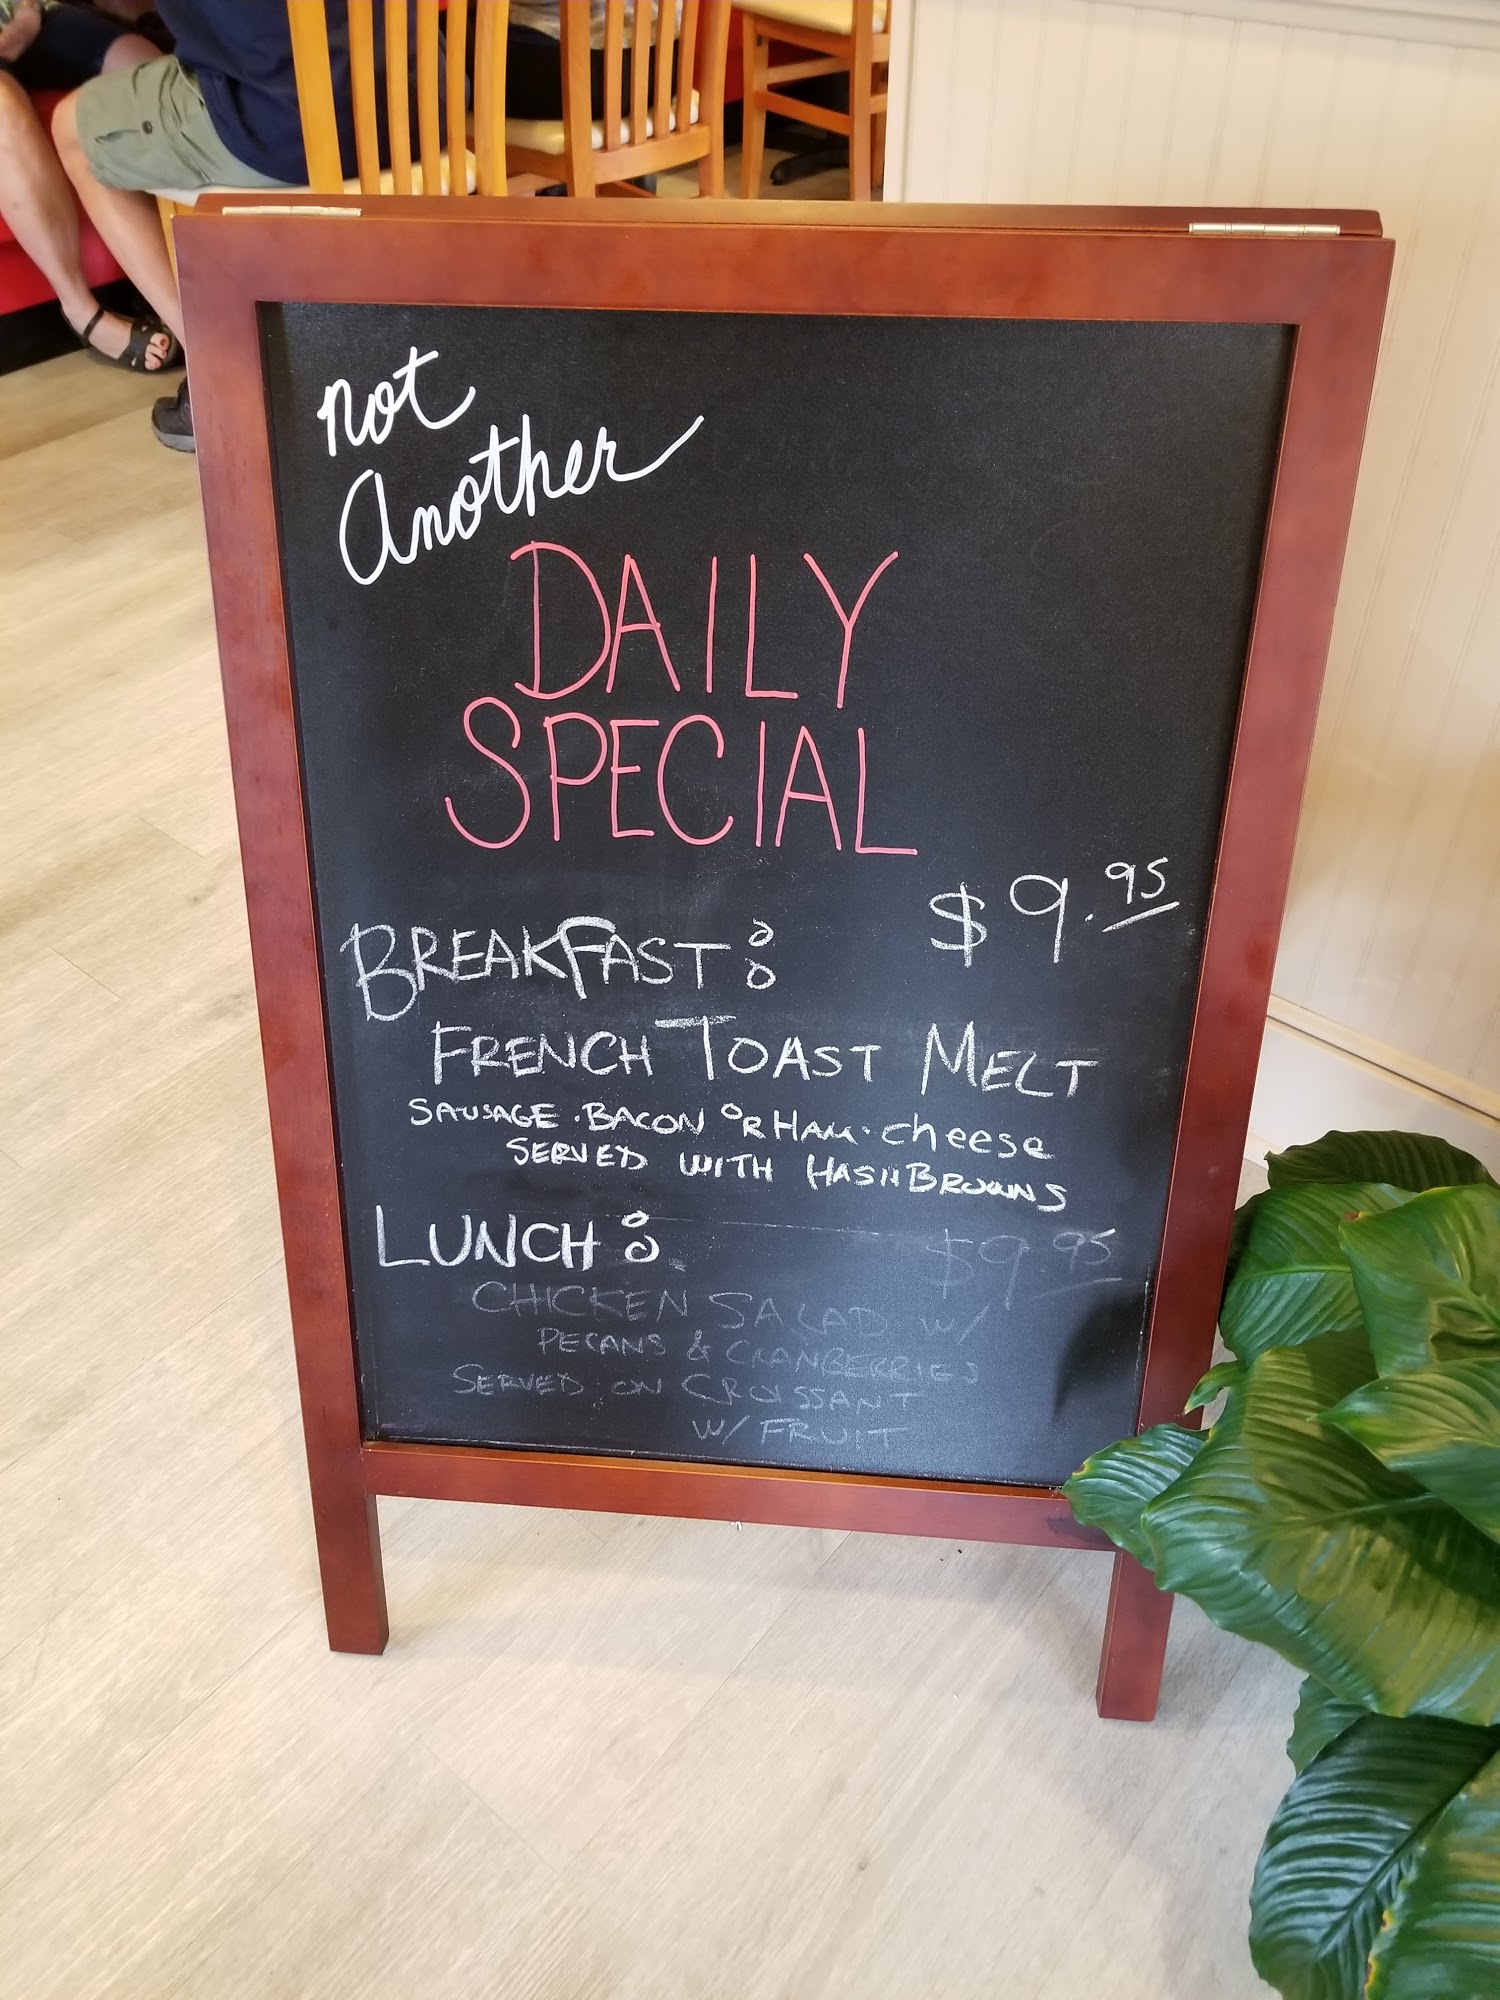 not
Another
DAILY
SPECIAL
BREAKFAST: $9.95
FRENCH TOAST MELT
SAUSAGE · BACON OR HAM · cheese
SERVED WITH HASHBROWNS
LUNCH: $9.95
CHICKEN SALAD W/
PECANS & CRANBERRIES
SERVED ON CROISSANT
W/ FRUIT